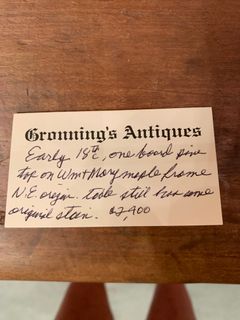 Gronning's Antiques
Early 18th C, one board pine
top on Wm + Mary maple frame
N.E. origin. table still has some
original stain. $2,900